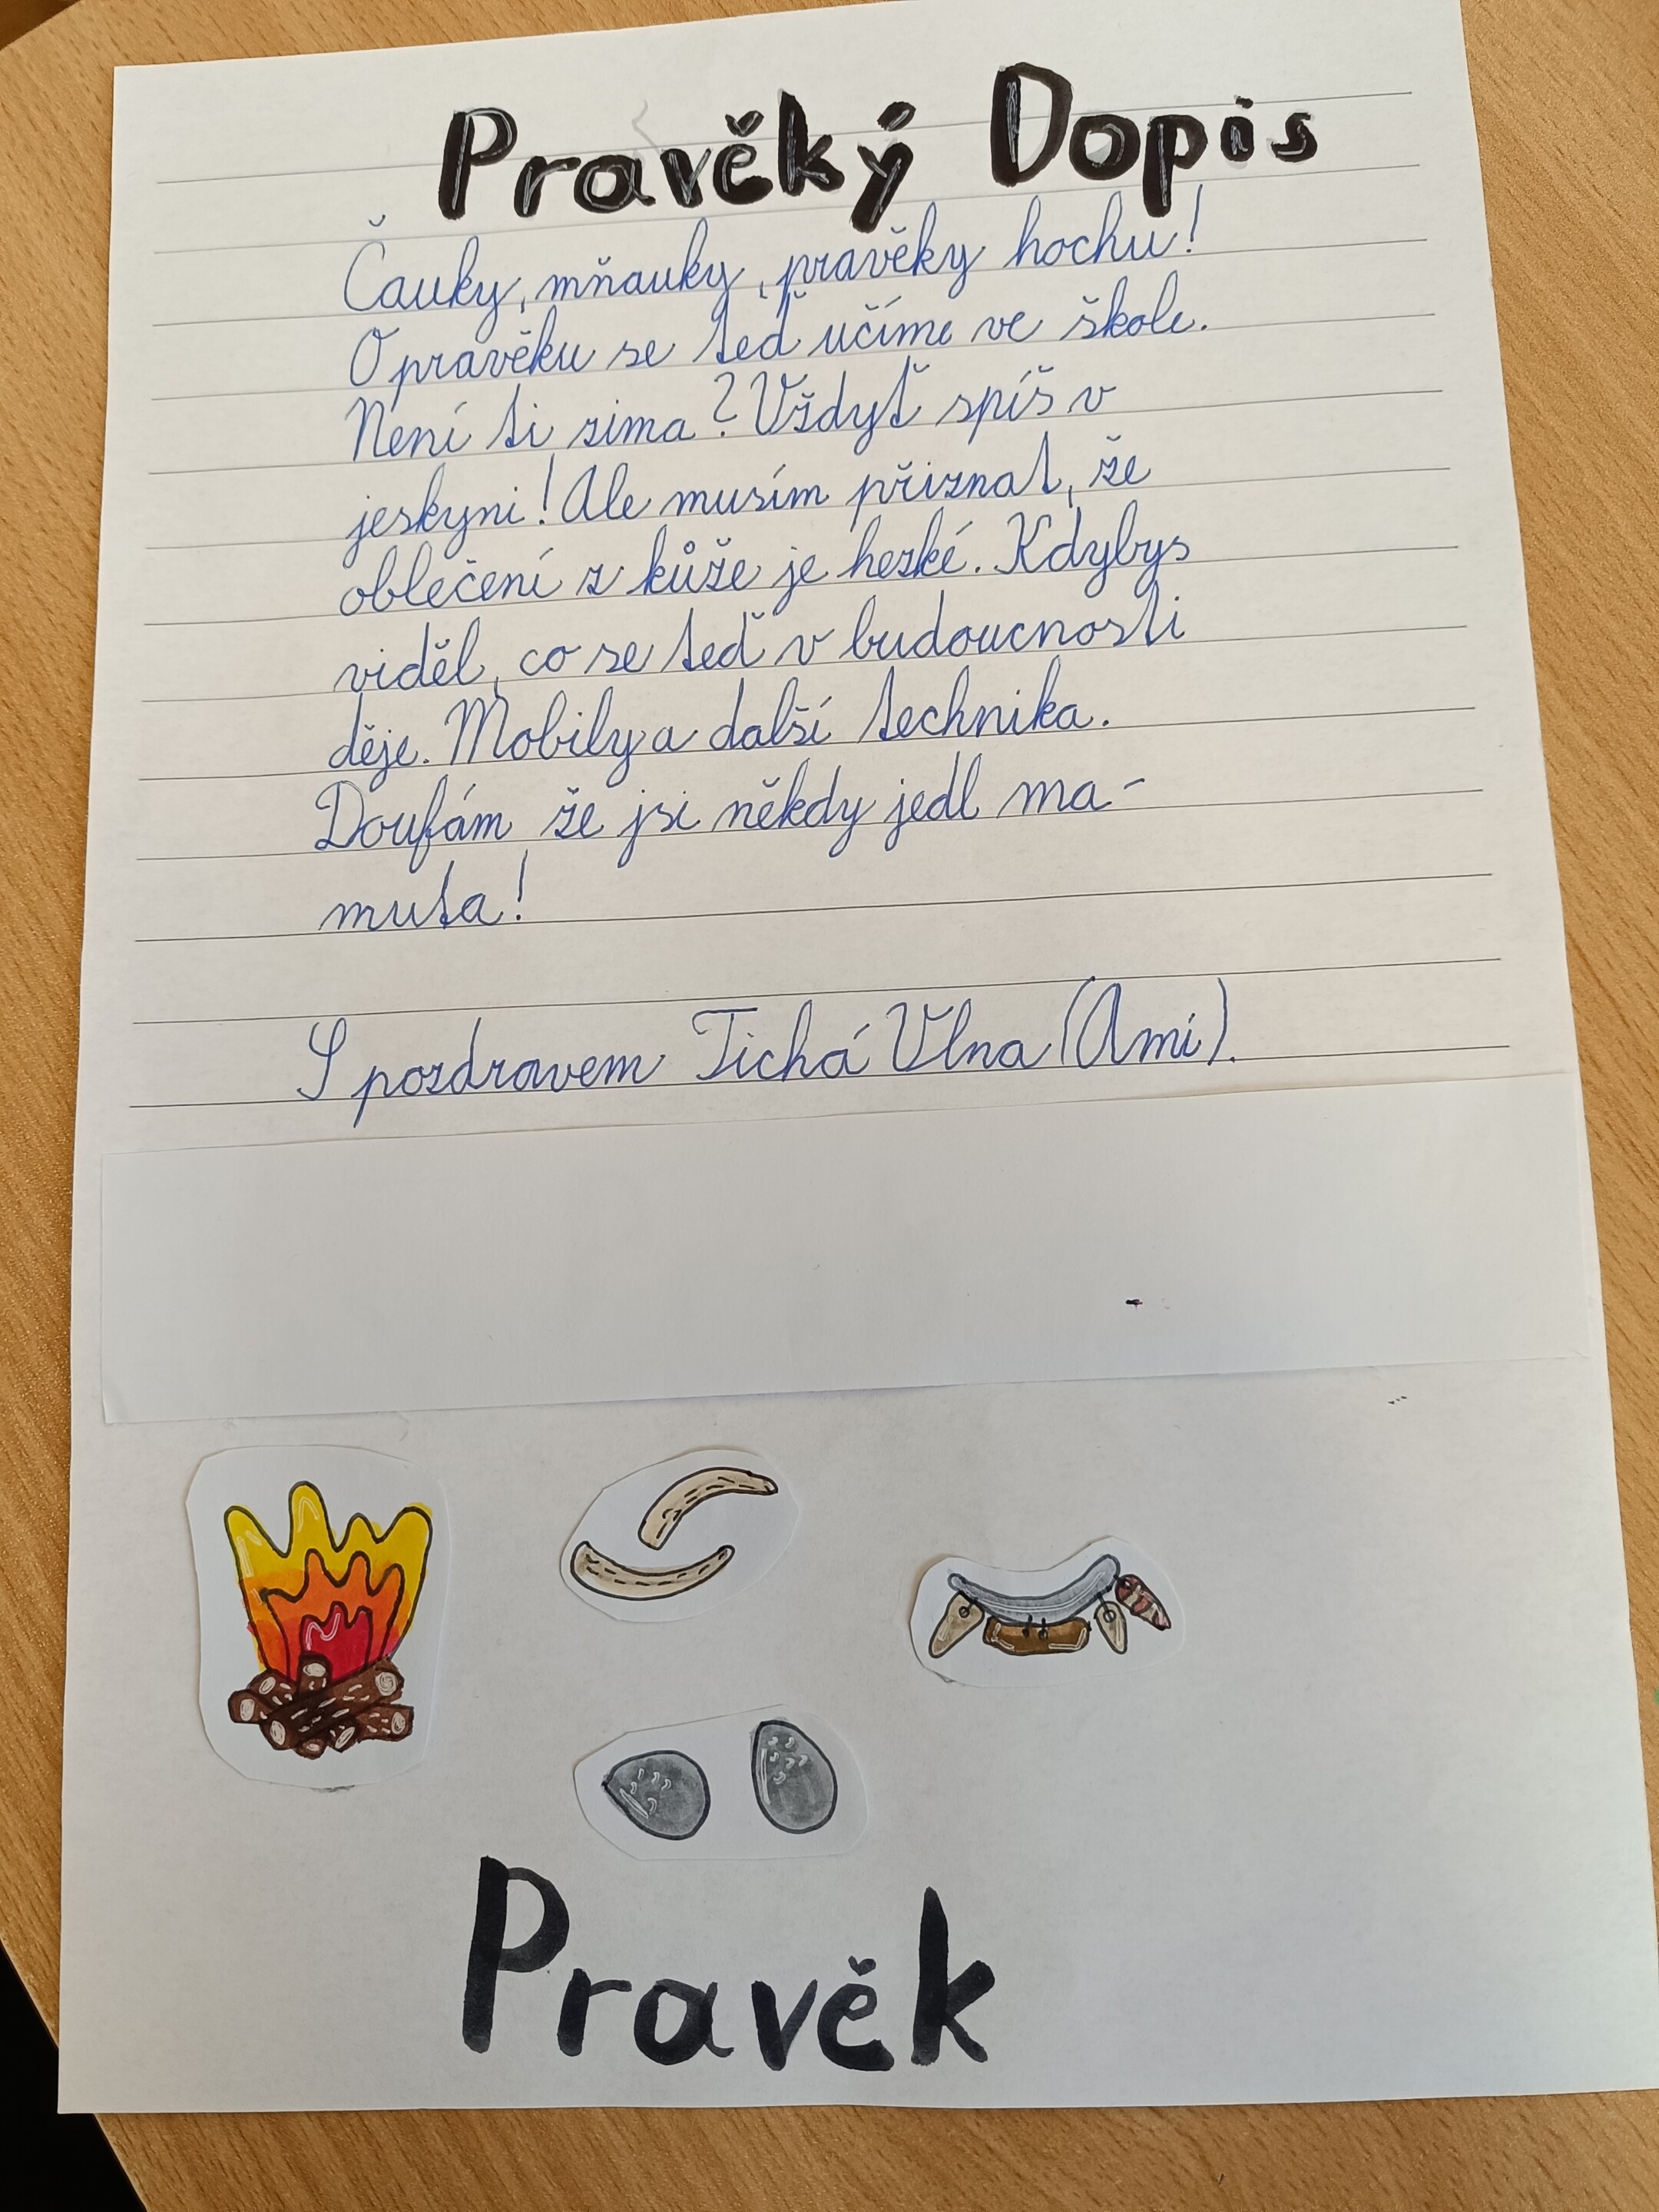 Pravěký Dopis
Čauky, mňauky, pravěky hochu!
O pravěku se teď učíme ve škole.
Není ti zima? Vždyť spíš v
jeskyni! Ale musím přiznat, že
oblečení z kůže je hezké. Kdybys
viděl, co se teď v budoucnosti
děje. Mobily a další technika.
Doufám že jsi někdy jedl ma-
muta!
S pozdravem Tichá Vlna (Ami).
Pravěk